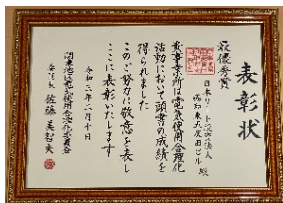 表彰状
最優秀賞
日本リート投資法人 殿
貴事業所は電気使用合理化
活動において頭書の成績を
得られました
このご努力に敬意を表し
ここに表彰いたします
令和三年二月十日
関東地区電気使用合理化委員会
委員長 佐藤 美智夫